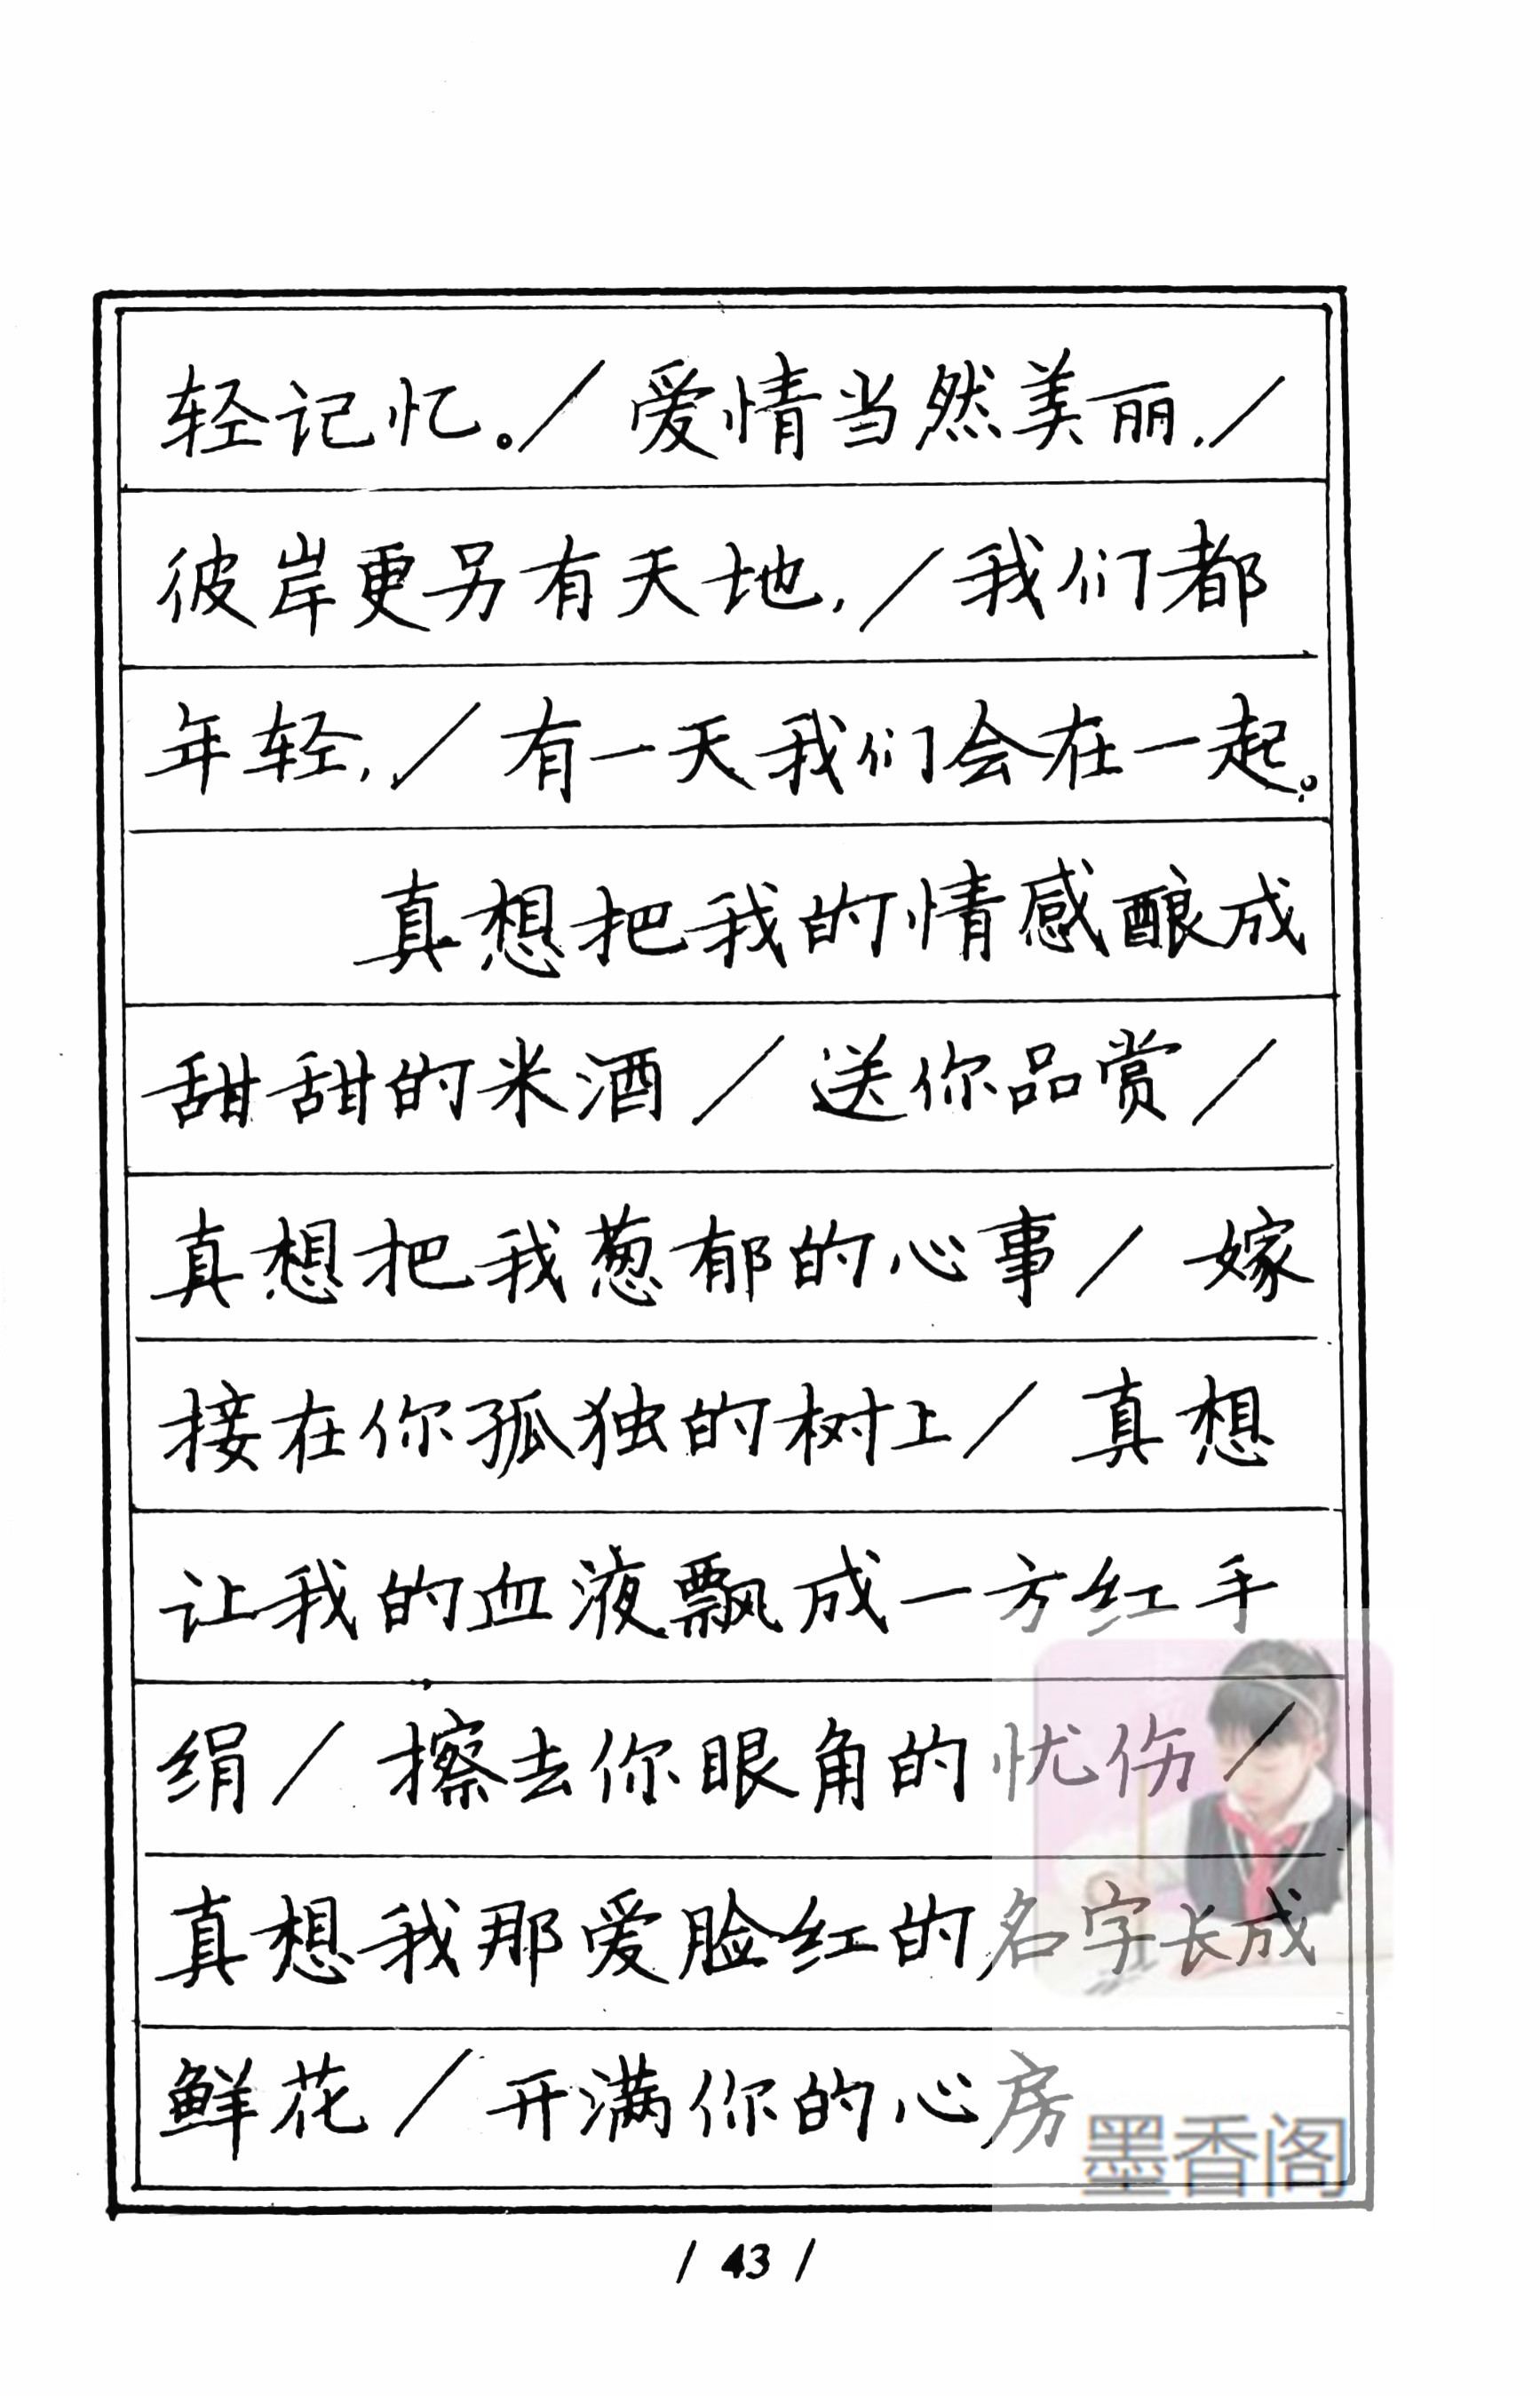 轻记忆。/爱情当然美丽,/
彼岸更另有天地,/我们都
年轻,/有一天我们会在一起。
真想把我的情感酿成
甜甜的米酒/送你品赏/
真想把我葱郁的心事/嫁
接在你孤独的树上/真想
让我的血液飘成一方红手
绢/擦去你眼角的忧伤/
真想我那爱脸红的名字长成
鲜花/开满你的心房
墨香阁
/ 43 /